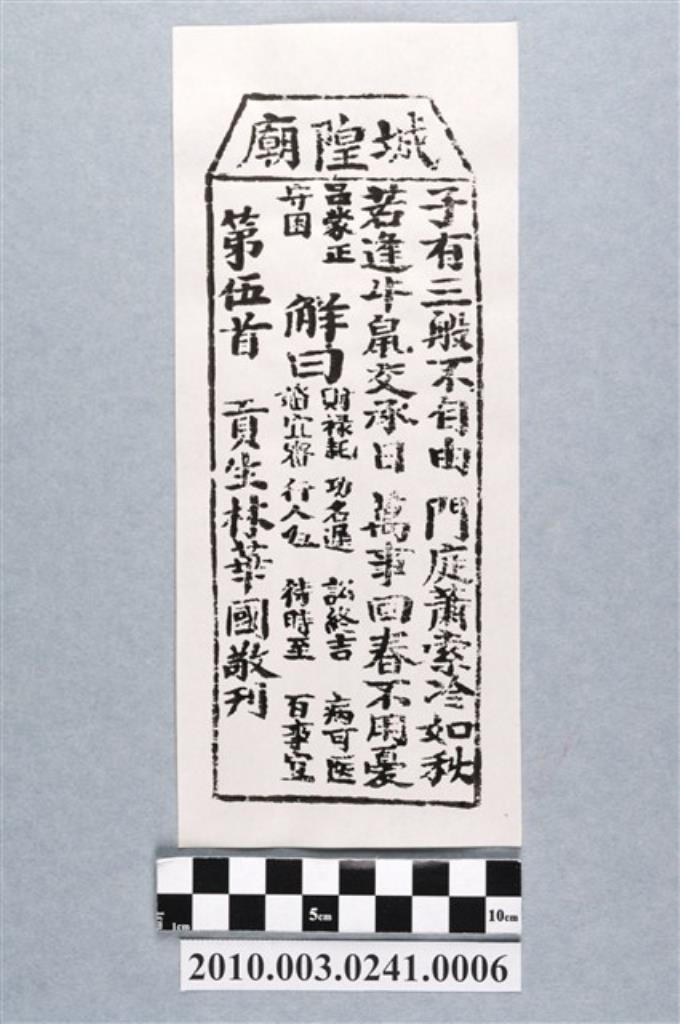 城隍廟
子有三般不自由 門庭蕭索冷如秋
若逢牛鼠交承日 萬事回春不用憂
呂蒙正
守困
解曰
財祿耗 功名遲 訟終吉 病可医
婚宜 行人 待時至 百事宜
第伍首 貢生林華國敬刊
1cm 5cm 10cm
2010.003.0241.0006